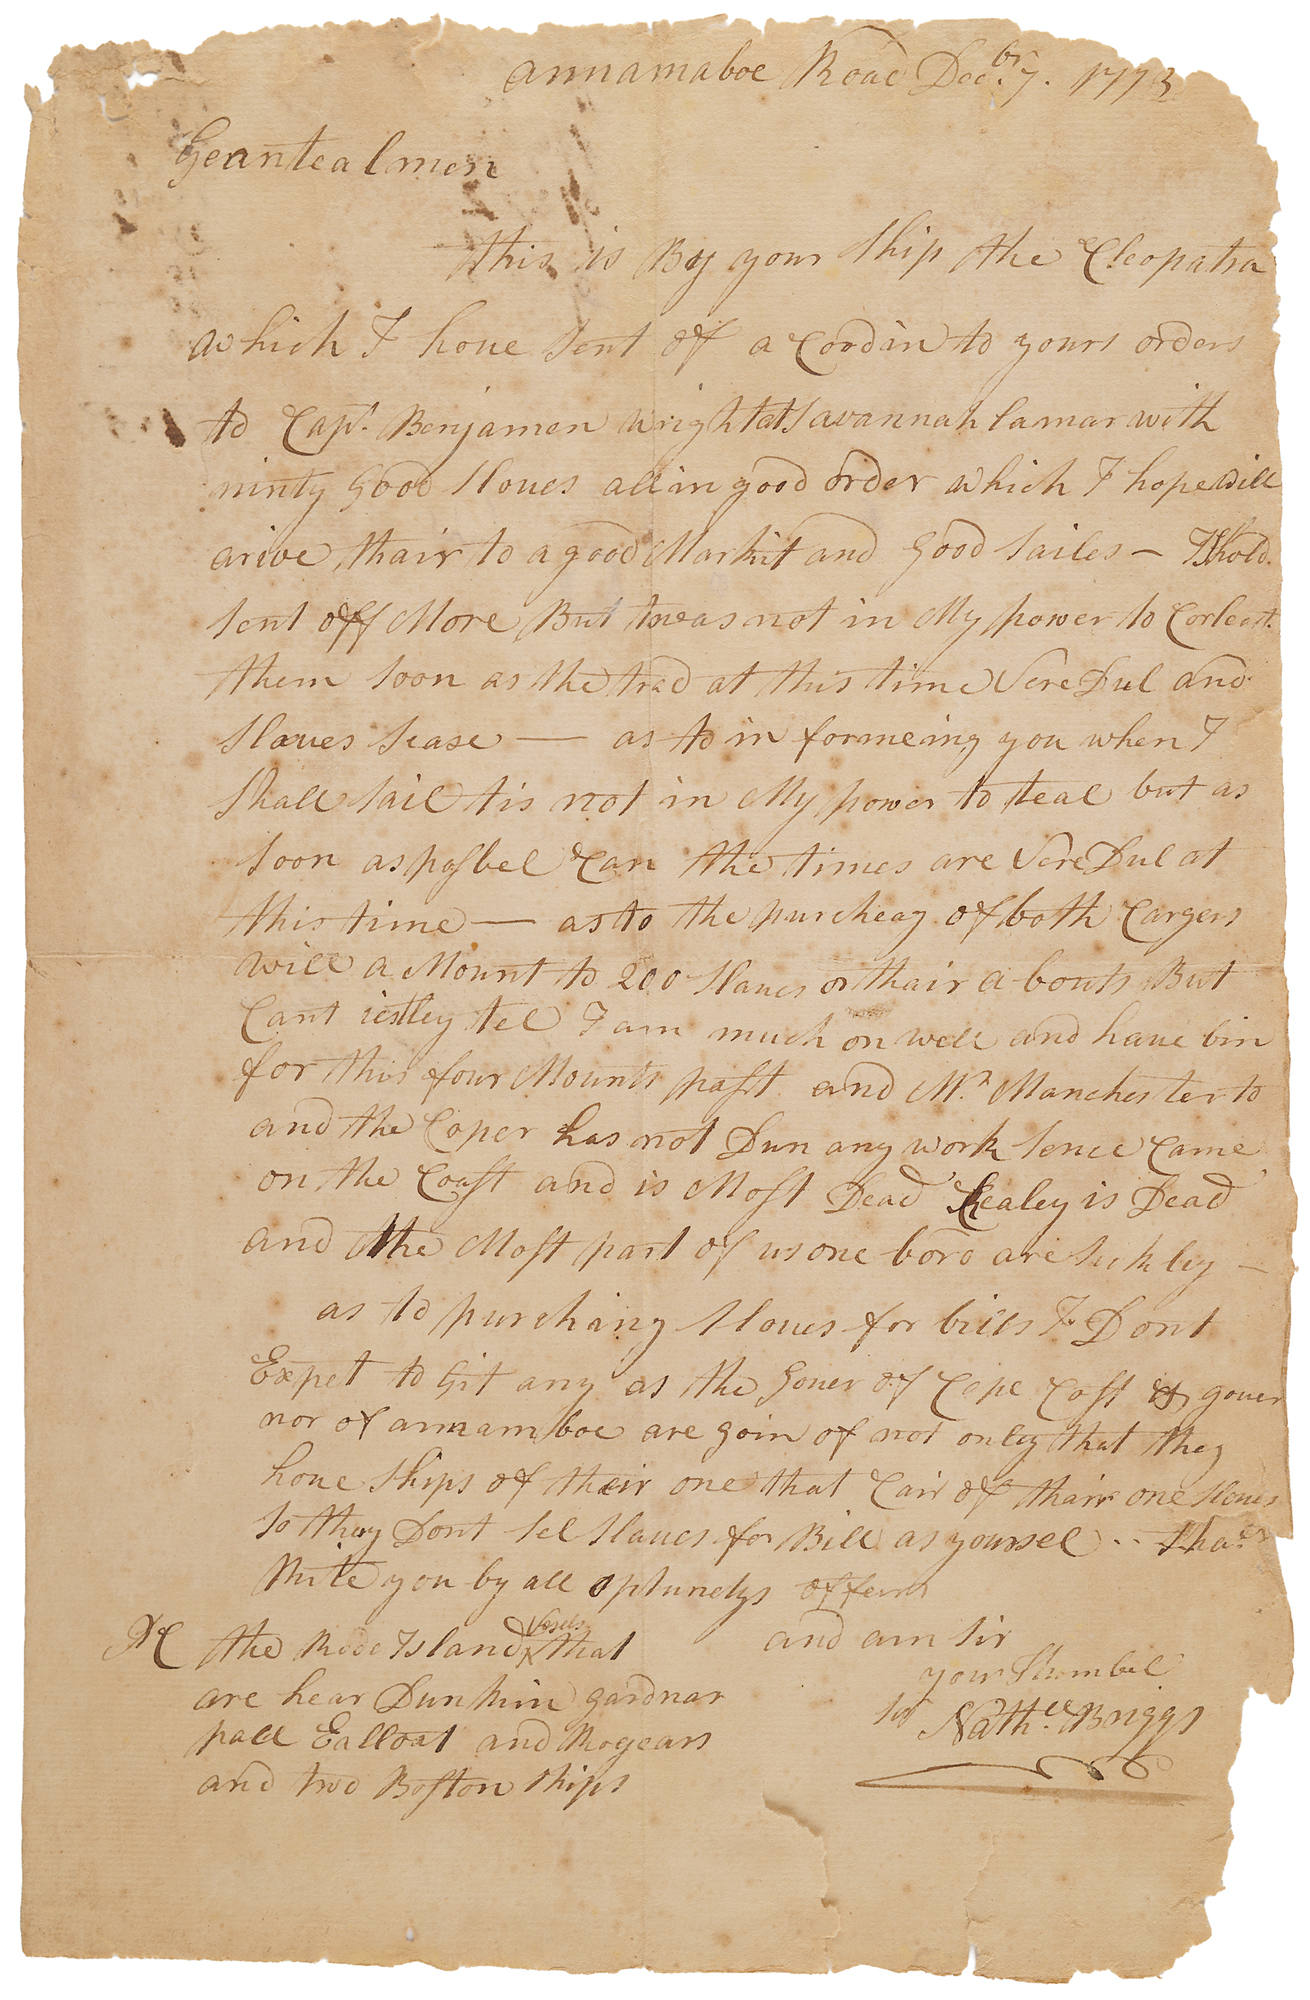 annamaboe Road Decbr. 7. 1773
Geantealmen
this is By your Ship the Cleopatra
which I have Sent of a Cordin to yours orders
to Capt. Benjamen wright at Savannah Lamar with
ninty Good Slaves all in good order which I hope will
arive thair to a good Markit and Good Sailes — I Shold
Sent off More But twas not in My power to Corleact.
them Soon as the trad at this time Vere Dul and
Slaves Scase — as to in formeing you when I
Shall Sail tis not in My power to teal but as
Soon as posbel Can the times are Vere Dul at
this time — as to the purcheas of both Cargers
will a Mount to 200 Slaves or thair a bouts But
Cant iestley tel I am much on well and have bin
for this four Mounts past and Mr. Manchester to
and the Coper has not Dun any work Sence Came
on the Coast and is Most Dead Kealey is Dead
and the Most part of us one bord are Sickley —
as to purching Slaves for bills I Dont
Expet to Git any as the Gover of Cape Cost & gover
nor of annamboe are goin of not only that they
have Ships of their one that Cair of thair one Slaves
So they Dont Sel Slaves for Bill as yousel ..
Rite you by all optunetys offers
and am Sir
your Humbel
Sr Nathll Briggs
the Rode Island Vesels that
are hear Dunkin gardnar
pall Ealloat and Rogears
and two Boston Ships